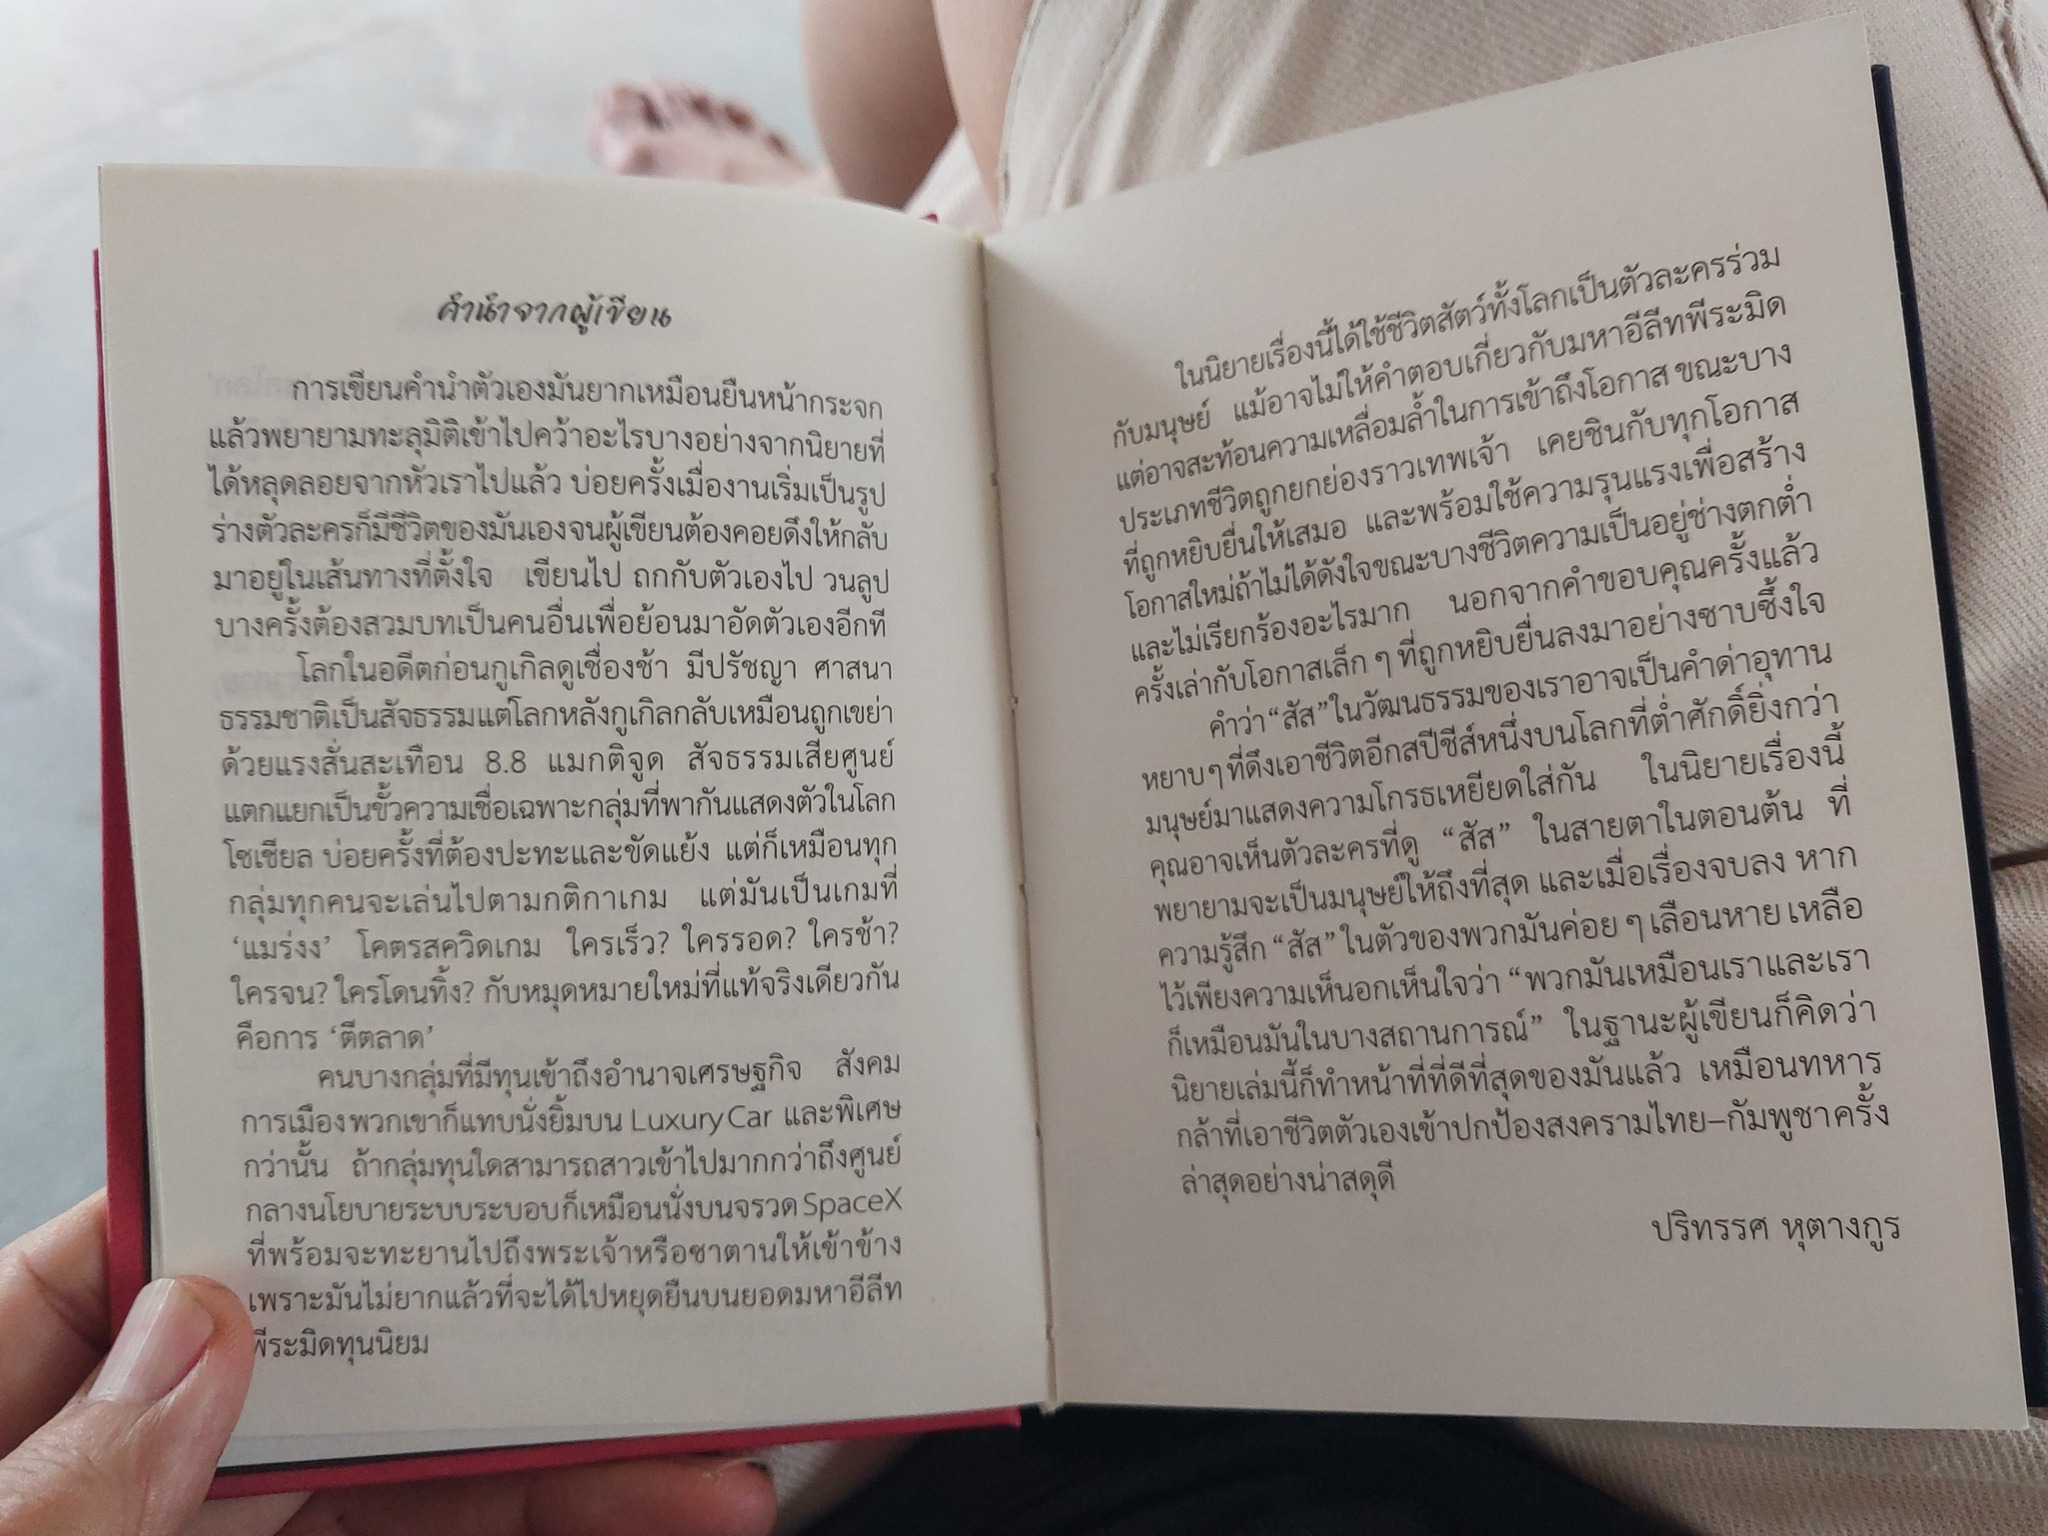 คำนำจากผู้เขียน
การเขียนคำนำตัวเองมันยากเหมือนยืนหน้ากระจก
แล้วพยายามทะลุมิติเข้าไปคว้าอะไรบางอย่างจากนิยายที่
ได้หลุดลอยจากหัวเราไปแล้ว บ่อยครั้งเมื่องานเริ่มเป็นรูป
ร่างตัวละครก็มีชีวิตของมันเองจนผู้เขียนต้องคอยดึงให้กลับ
มาอยู่ในเส้นทางที่ตั้งใจ เขียนไป ถกกับตัวเองไป วนลูป
บางครั้งต้องสวมบทเป็นคนอื่นเพื่อย้อนมาอัดตัวเองอีกที
โลกในอดีตก่อนกูเกิลดูเชื่องช้า มีปรัชญา ศาสนา
ธรรมชาติเป็นสัจธรรมแต่โลกหลังกูเกิลกลับเหมือนถูกเขย่า
ด้วยแรงสั่นสะเทือน 8.8 แมกติจูด สัจธรรมเสียศูนย์
แตกแยกเป็นขั้วความเชื่อเฉพาะกลุ่มที่พากันแสดงตัวในโลก
โซเชียล บ่อยครั้งที่ต้องปะทะและขัดแย้ง แต่ก็เหมือนทุก
กลุ่มทุกคนจะเล่นไปตามกติกาเกม แต่มันเป็นเกมที่
‘แมร่งง’ โคตรสควิดเกม ใครเร็ว? ใครรอด? ใครช้า?
ใครจน? ใครโดนทิ้ง? กับหมุดหมายใหม่ที่แท้จริงเดียวกัน
คือการ ‘ตีตลาด’
คนบางกลุ่มที่มีทุนเข้าถึงอำนาจเศรษฐกิจ สังคม
การเมืองพวกเขาก็แทบนั่งยิ้มบน Luxury Car และพิเศษ
กว่านั้น ถ้ากลุ่มทุนใดสามารถสาวเข้าไปมากกว่าถึงศูนย์
กลางนโยบายระบบระบอบก็เหมือนนั่งบนจรวด SpaceX
ที่พร้อมจะทะยานไปถึงพระเจ้าหรือซาตานให้เข้าข้าง
เพราะมันไม่ยากแล้วที่จะได้ไปหยุดยืนบนยอดมหาอีลีท
พีระมิดทุนนิยม
ในนิยายเรื่องนี้ได้ใช้ชีวิตสัตว์ทั้งโลกเป็นตัวละครร่วม
กับมนุษย์ แม้อาจไม่ให้คำตอบเกี่ยวกับมหาอีลีทพีระมิด
แต่อาจสะท้อนความเหลื่อมล้ำในการเข้าถึงโอกาส ขณะบาง
ประเภทชีวิตถูกยกย่องราวเทพเจ้า เคยชินกับทุกโอกาส
ที่ถูกหยิบยื่นให้เสมอ และพร้อมใช้ความรุนแรงเพื่อสร้าง
โอกาสใหม่ถ้าไม่ได้ดังใจขณะบางชีวิตความเป็นอยู่ช่างตกต่ำ
และไม่เรียกร้องอะไรมาก นอกจากคำขอบคุณครั้งแล้ว
ครั้งเล่ากับโอกาสเล็ก ๆ ที่ถูกหยิบยื่นลงมาอย่างซาบซึ้งใจ
คำว่า “สัส” ในวัฒนธรรมของเราอาจเป็นคำด่าอุทาน
หยาบ ๆ ที่ดึงเอาชีวิตอีกสปีชีส์หนึ่งบนโลกที่ต่ำศักดิ์ยิ่งกว่า
มนุษย์มาแสดงความโกรธเหยียดใส่กัน ในนิยายเรื่องนี้
คุณอาจเห็นตัวละครที่ดู “สัส” ในสายตาในตอนต้น ที่
พยายามจะเป็นมนุษย์ให้ถึงที่สุด และเมื่อเรื่องจบลง หาก
ความรู้สึก “สัส” ในตัวของพวกมันค่อย ๆ เลือนหาย เหลือ
ไว้เพียงความเห็นอกเห็นใจว่า “พวกมันเหมือนเราและเรา
ก็เหมือนมันในบางสถานการณ์” ในฐานะผู้เขียนก็คิดว่า
นิยายเล่มนี้ก็ทำหน้าที่ที่ดีที่สุดของมันแล้ว เหมือนทหาร
กล้าที่เอาชีวิตตัวเองเข้าปกป้องสงครามไทย–กัมพูชาครั้ง
ล่าสุดอย่างน่าสดุดี
ปริทรรศ หุตางกูร